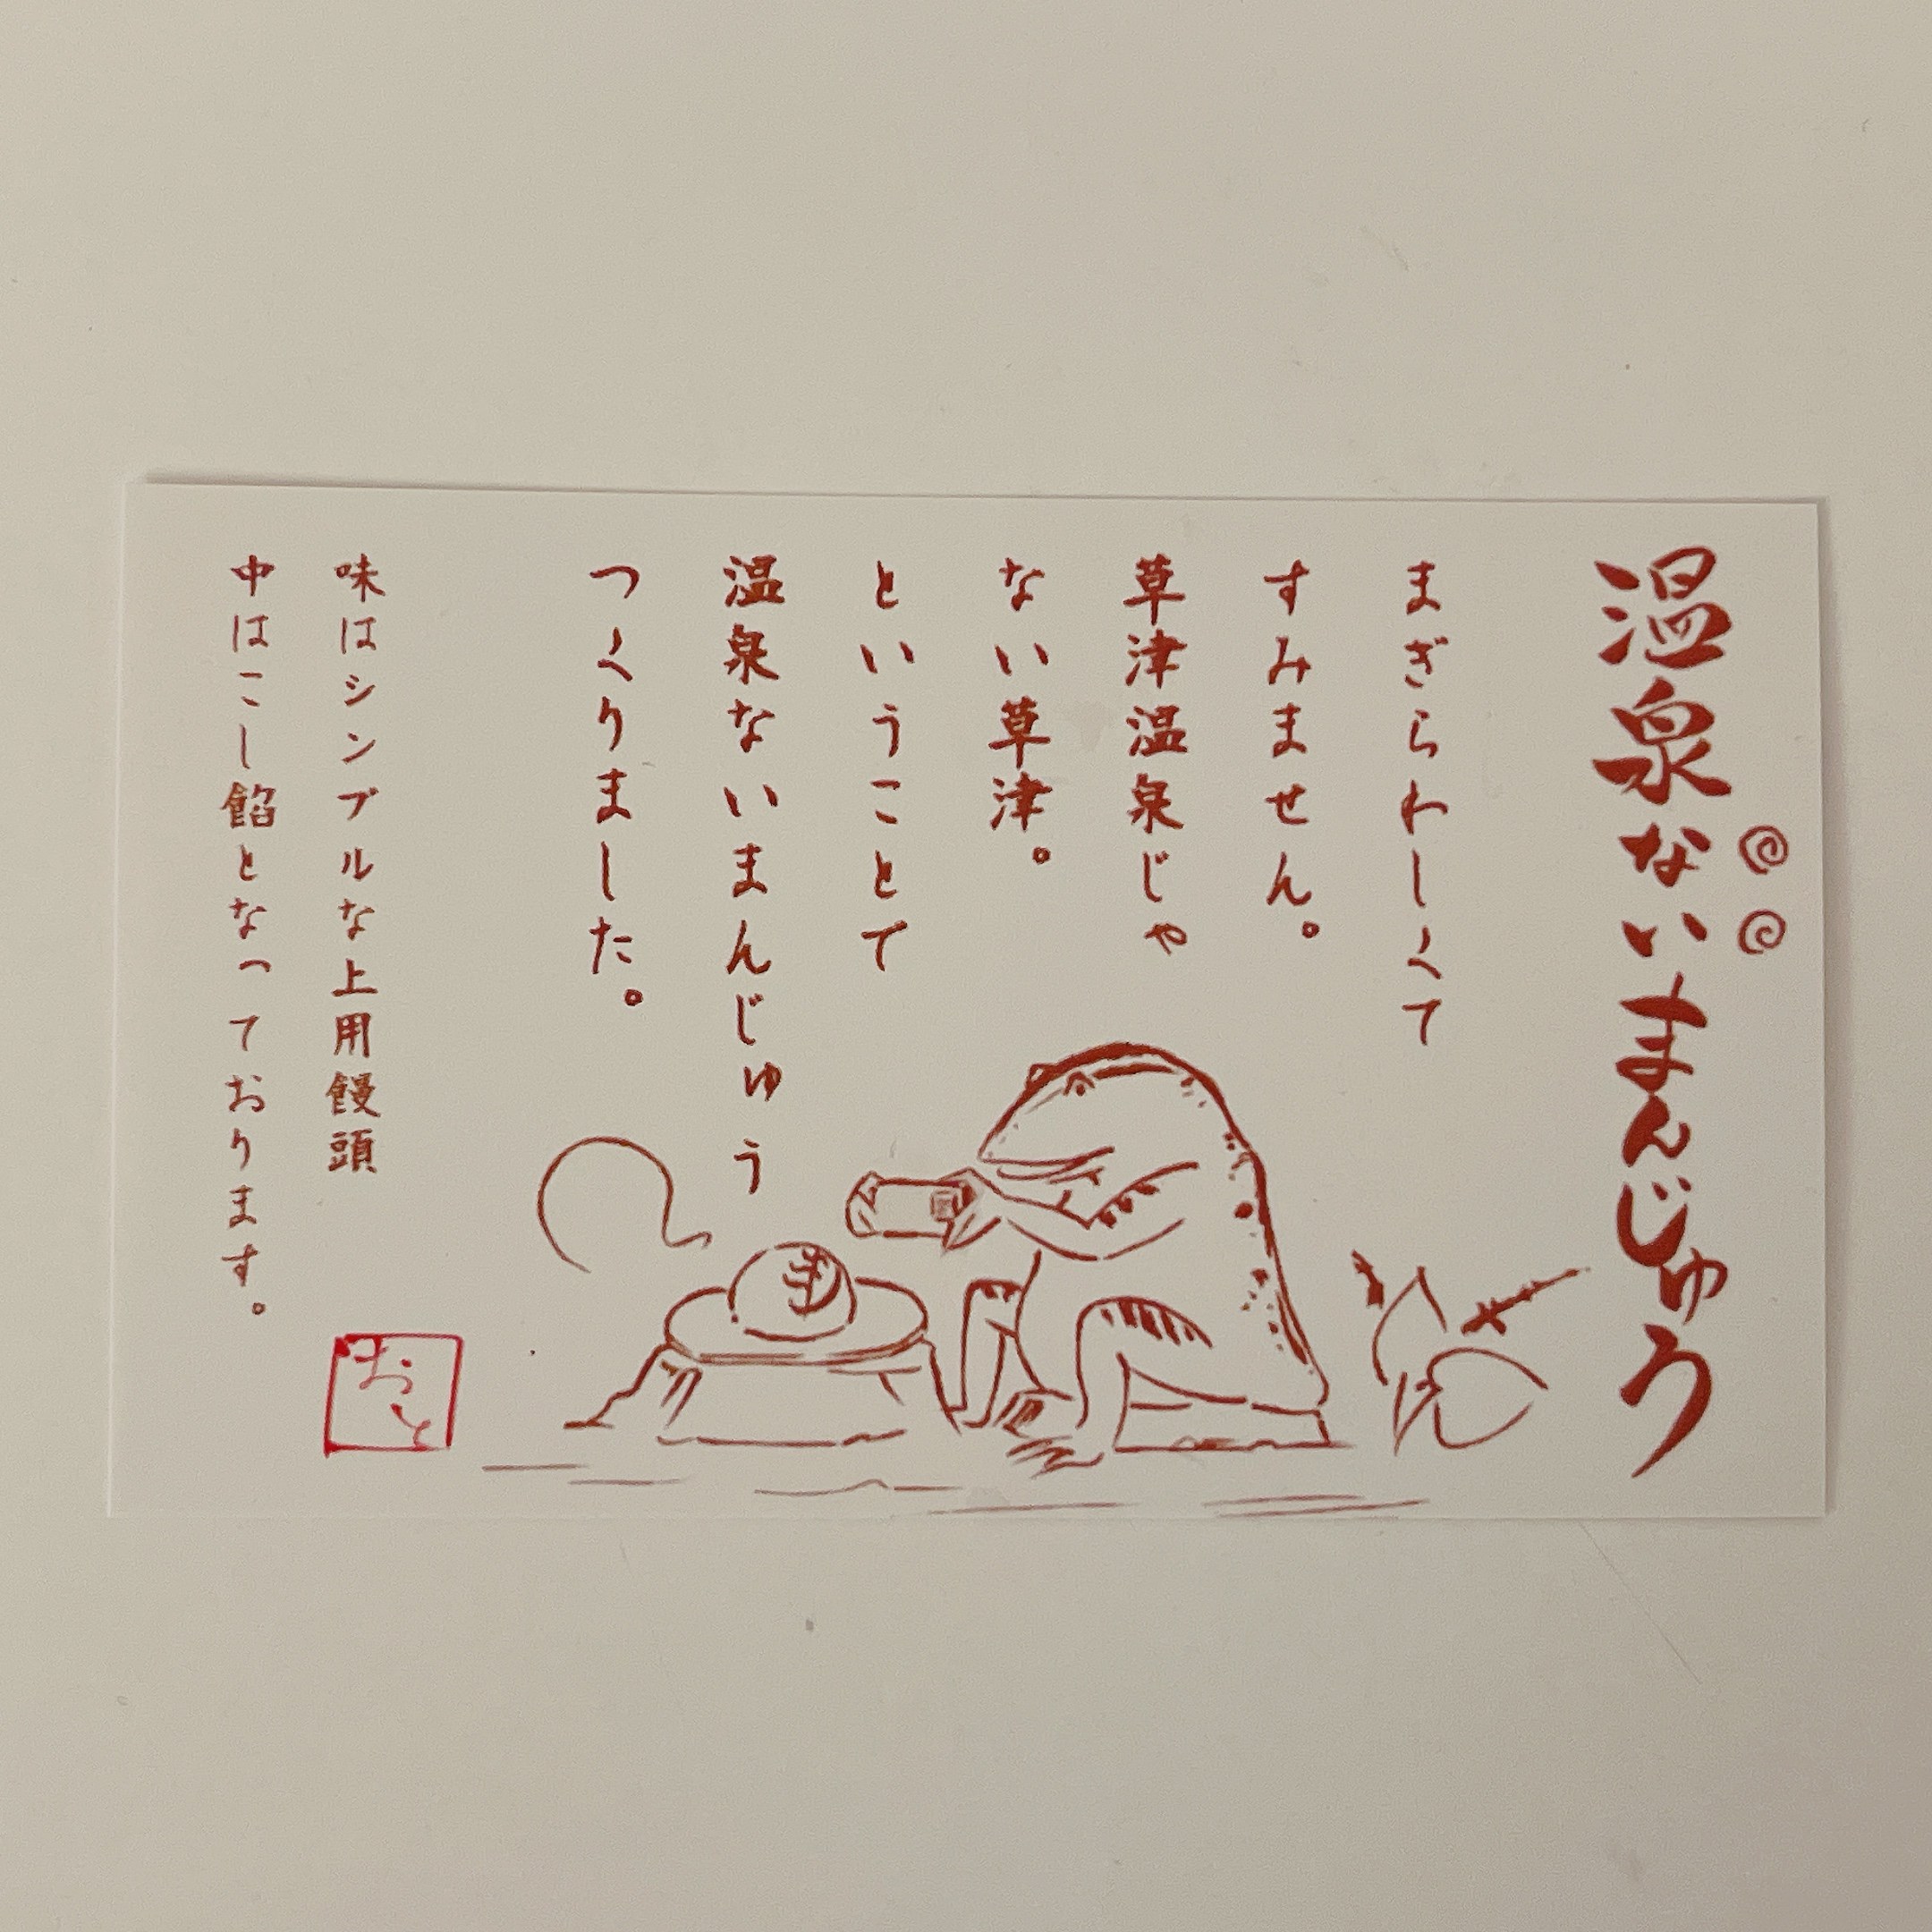 温泉ないまんじゅう
まぎらわしくて
すみません。
草津温泉じゃ
ない草津。
ということで
温泉ないまんじゅう
つくりました。
味はシンプルな上用饅頭
中はこし餡となっております。
おと